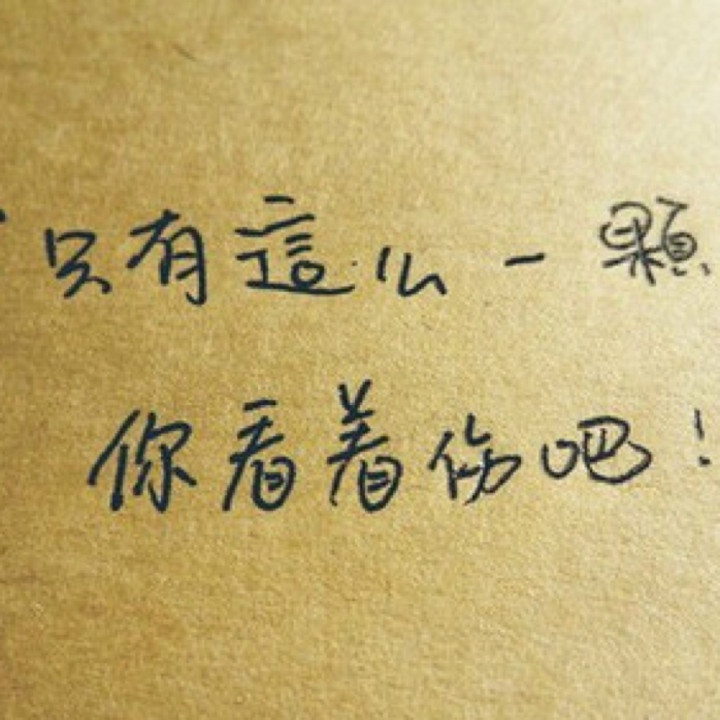 只有這么一顆
你看着伤吧!